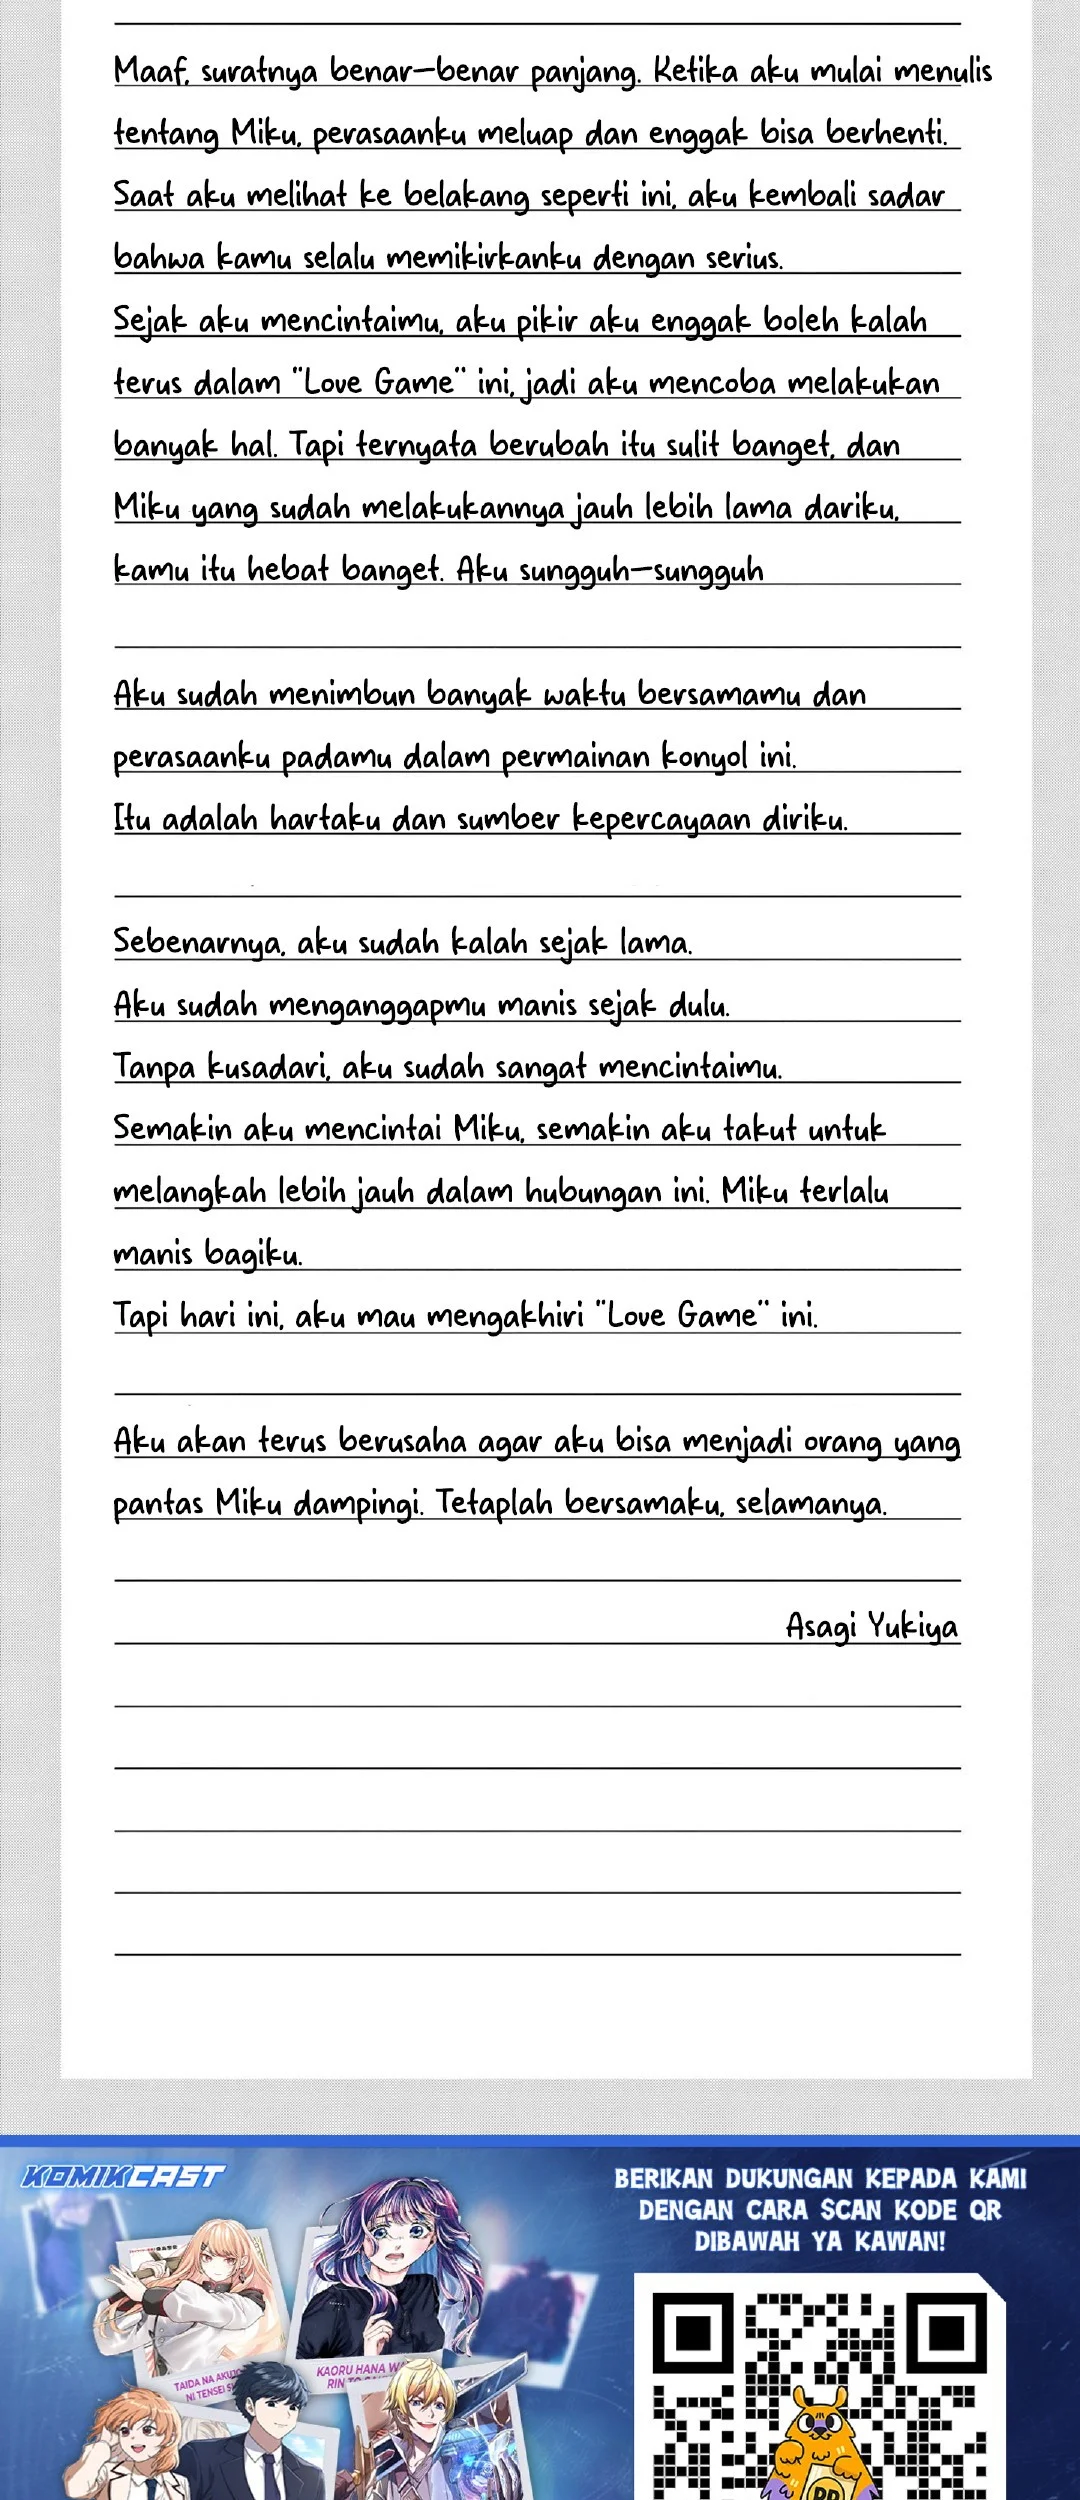 Maaf, suratnya benar-benar panjang. Ketika aku mulai menulis
tentang Miku, perasaanku meluap dan enggak bisa berhenti.
Saat aku melihat ke belakang seperti ini, aku kembali sadar
bahwa kamu selalu memikirkanku dengan serius.
Sejak aku mencintaimu, aku pikir aku enggak boleh kalah
terus dalam "Love Game" ini, jadi aku mencoba melakukan
banyak hal. Tapi ternyata berubah itu sulit banget, dan
Miku yang sudah melakukannya jauh lebih lama dariku,
kamu itu hebat banget. Aku sungguh-sungguh
Aku sudah menimbun banyak waktu bersamamu dan
perasaanku padamu dalam permainan konyol ini.
Itu adalah hartaku dan sumber kepercayaan diriku.
Sebenarnya, aku sudah kalah sejak lama.
Aku sudah menganggapmu manis sejak dulu.
Tanpa kusadari, aku sudah sangat mencintaimu.
Semakin aku mencintai Miku, semakin aku takut untuk
melangkah lebih jauh dalam hubungan ini. Miku terlalu
manis bagiku.
Tapi hari ini, aku mau mengakhiri "Love Game" ini.
Aku akan terus berusaha agar aku bisa menjadi orang yang
pantas Miku dampingi. Tetaplah bersamaku, selamanya.
Asagi Yukiya
KOMIKCAST
BERIKAN DUKUNGAN KEPADA KAMI
DENGAN CARA SCAN KODE QR
DIBAWAH YA KAWAN!
TAIDA NA
NI TENSEI
KAORU HANA
RIN